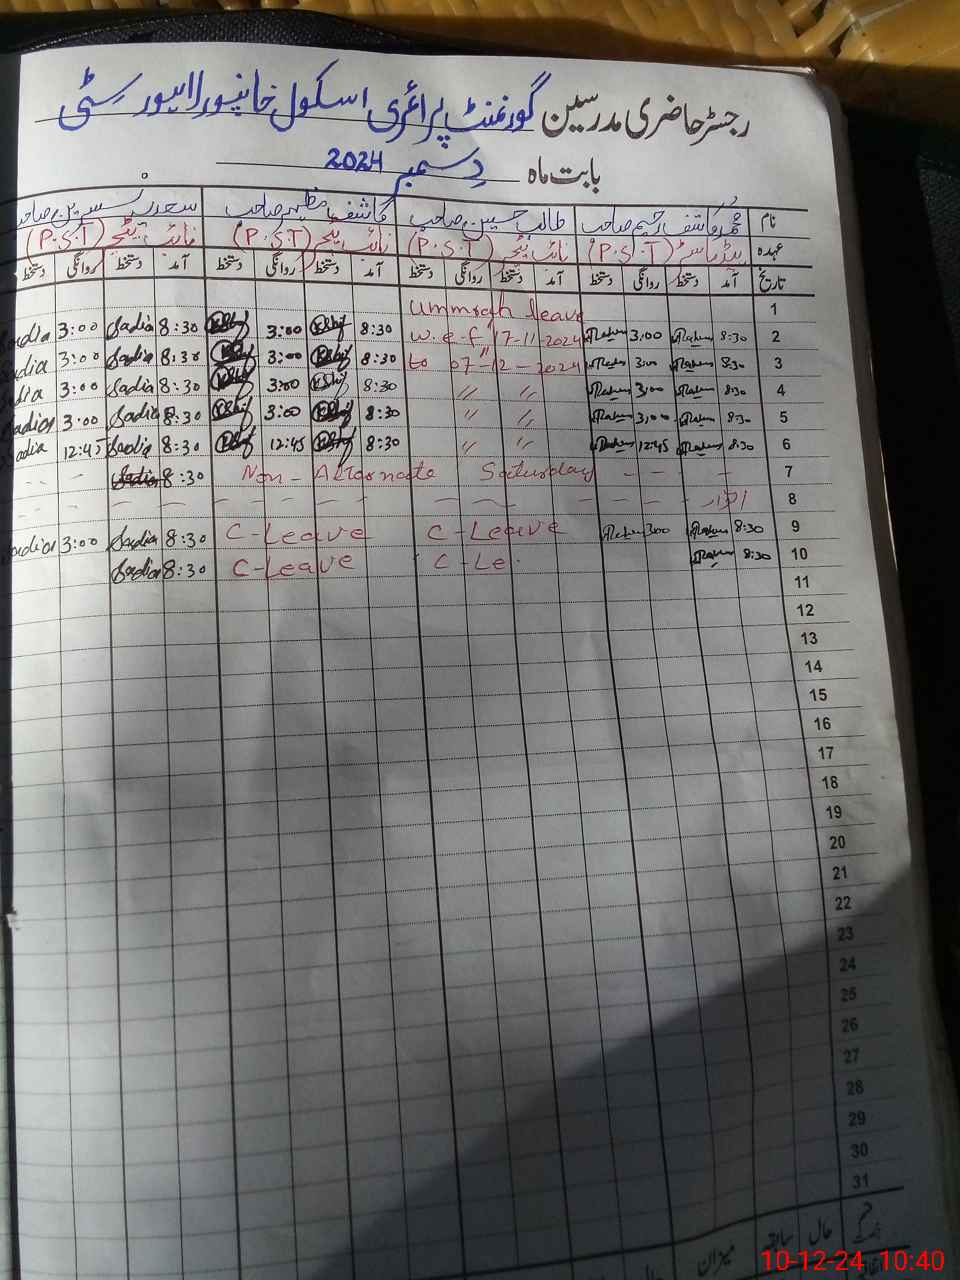 رجسٹر حاضری مدرسین گورنمنٹ پرائمری اسکول خانپور
بابت ماہ دسمبر 2024
نام محمد کاشف رحیم صاحب طالب حسین صاحب کاشف صاحب سعدیہ نسرین صاحبہ
عہدہ ہیڈ ماسٹر (P.S.T) نائب ٹیچر (P.S.T) نائب ٹیچر (P.S.T) نائب ٹیچر (P.S.T)
تاریخ آمد دستخط روانگی دستخط آمد دستخط روانگی دستخط آمد دستخط روانگی دستخط آمد دستخط روانگی دستخط
Ummrah leave 1
3:00 Sadia 8:30 3:00 8:30 w.e.f 17-11-2024 3:00 8:30 2
3:00 Sadia 8:30 3:00 8:30 to 07-12-2024 3:00 8:30 3
3:00 Sadia 8:30 3:00 8:30 〃 〃 3:00 8:30 4
3:00 Sadia 8:30 3:00 8:30 〃 〃 3:00 8:30 5
12:45 Sadia 8:30 12:45 8:30 〃 〃 12:45 8:30 6
Sadia 8:30 Non-Alternate Saturday 7
اتوار 8
3:00 Sadia 8:30 C-Leave C-Leave 3:00 8:30 9
Sadia 8:30 C-Leave C-Le 8:30 10
11
12
13
14
15
16
17
18
19
20
21
22
23
24
25
26
27
28
29
30
31
حال سابقہ میزان
10-12-24 10:40